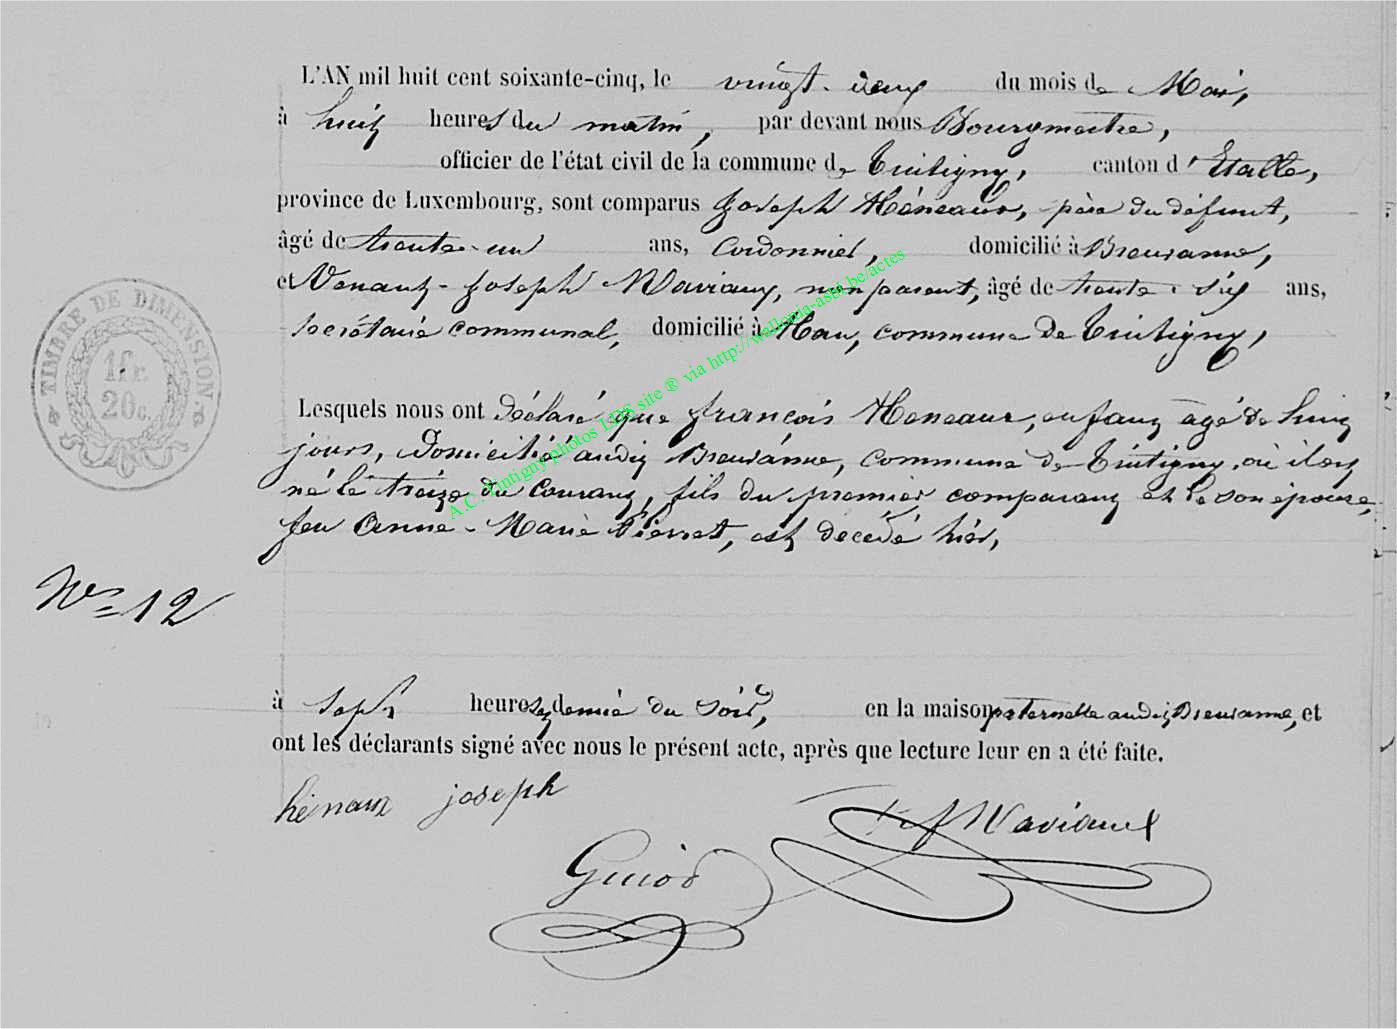 L'AN mil huit cent soixante-cinq, le vingt-deux du mois de Mai,
à huit heures du matin, par devant nous Bourgmestre,
officier de l'état civil de la commune de Tintigny, canton d'Etalle,
province de Luxembourg, sont comparus Joseph Héneaux, père du défunt,
âgé de trente-un ans, Cordonnier, domicilié à Breuvanne,
et Venant-Joseph Maviaux, non parent, âgé de trente-six ans,
secrétaire communal, domicilié à Han, commune de Tintigny,
Lesquels nous ont déclaré que françois Heneaux, enfant âgé de huit
jours, domicilié audit Breuvanne, commune de Tintigny, où il est
né le treize du courant, fils du premier comparant et de son épouse,
feu Anne-Marie Pierret, est décédé hier,
TIMBRE DE DIMENSION
1 fr.
20 c.
No 12
à sept heures et demie du soir, en la maison paternelle audit Breuvanne, et
ont les déclarants signé avec nous le présent acte, après que lecture leur en a été faite.
hénaux joseph
Maviaux
Guiod
A.C. Tintigny photos LDS site ® via http://wallonia-asbl.be/actes